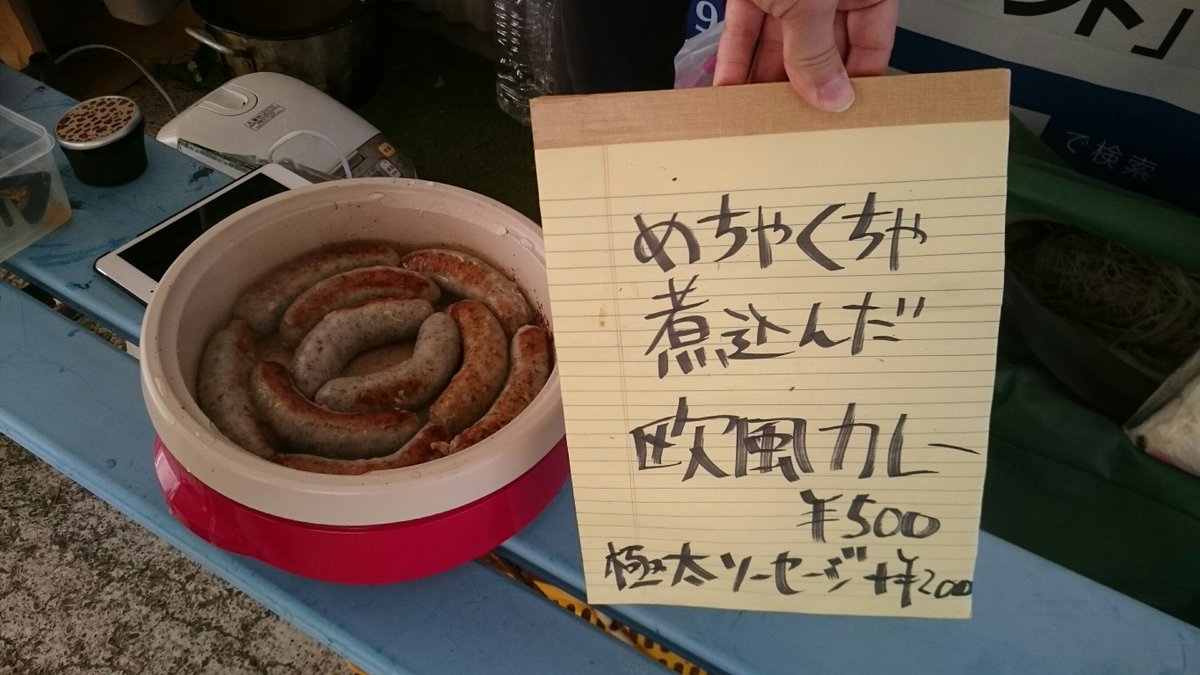 めちゃくちゃ
煮込んだ
欧風カレー
¥500
極太ソーセージ+¥200
で検索
9